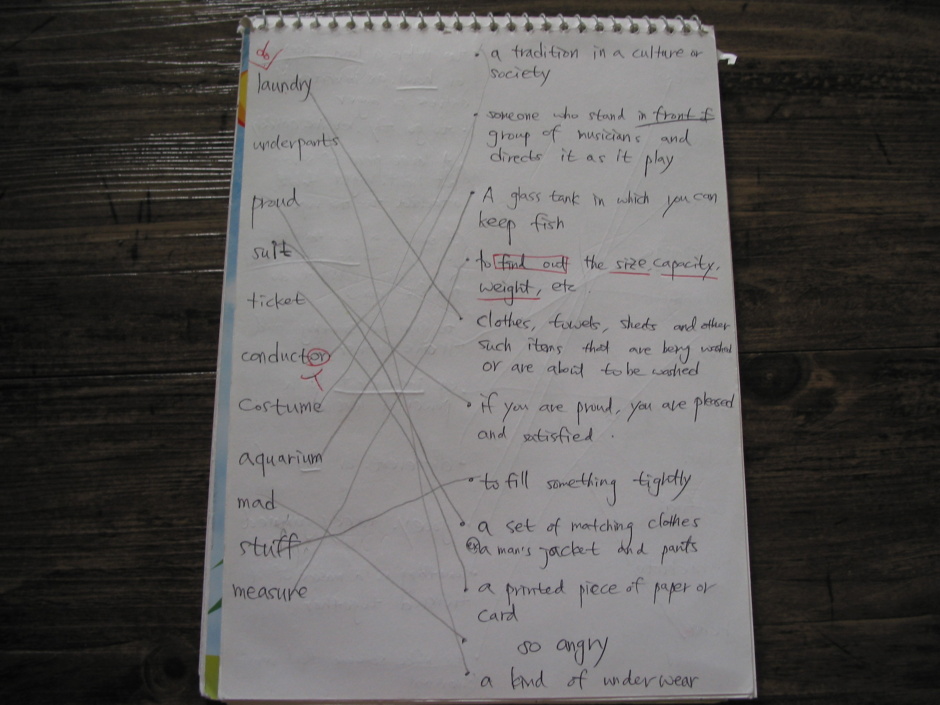 do
laundry
underpants
proud
suit
ticket
conductor
costume
aquarium
mad
stuff
measure
a tradition in a culture or
society
someone who stand in front of
group of musicians and
directs it as it play
A glass tank in which you can
keep fish
to find out the size, capacity,
weight, etc.
clothes, towels, sheds and other
such items that are being washed
or are about to be washed
if you are proud, you are pleased
and satisfied.
to fill something tightly
a set of matching clothes
a man's jacket and pants
a printed piece of paper or
card
so angry
a kind of underwear